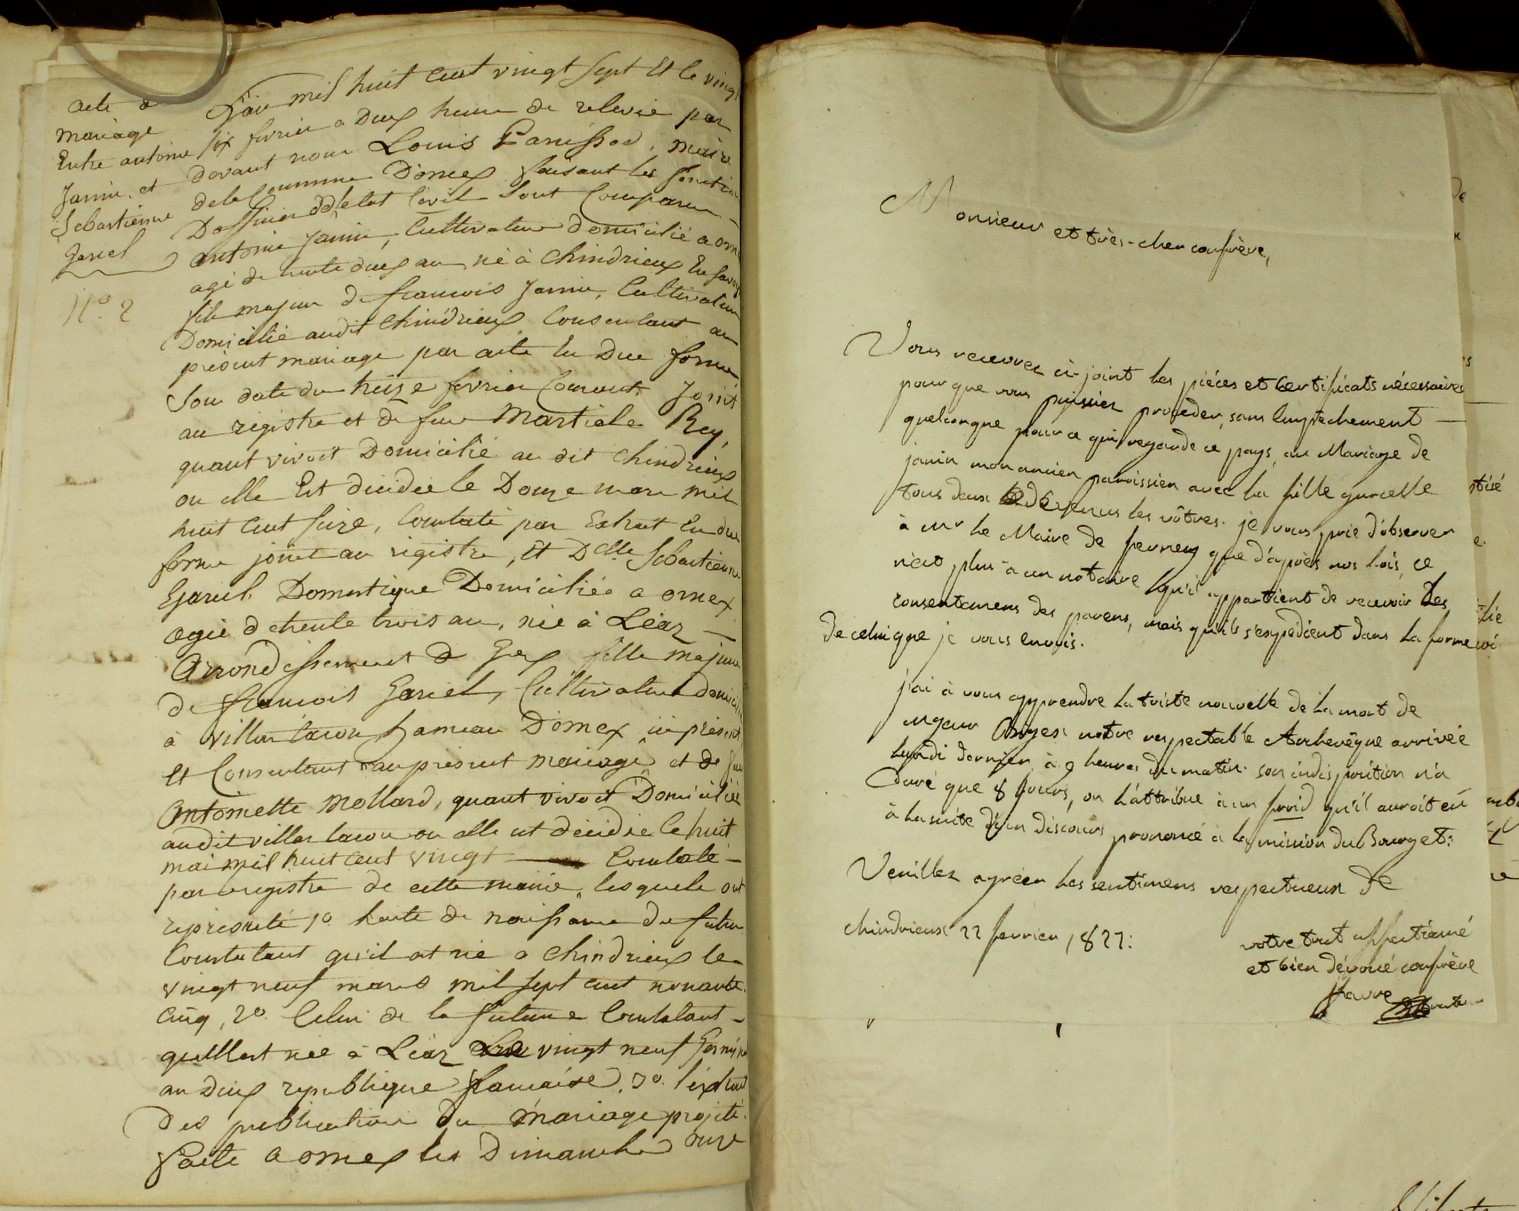 acte de
mariage
Entre antoine
Janin et
Sebastienne
Gariel
N° 2
L'an mil huit cent vingt sept Et le vingt
six fevrier a deux heure de relevée par
devant nous Louis Panissod, maire
de la Commune D'ornex faisant les fonction
D'officier de l'état Civil Sont Comparu
antoine Janin, Cultivateur domicilié a ornex
agé de trente deux an né à Chindrieux En Savoy
fils majeur de françois Janin, Cultivateur
Domicilié audit Chindrieux Consentant au
présent mariage par acte en Due forme
Sou date du treize fevrier Courant Joint
au registre et de feue Martiale Rey,
quant vivoit Domicilié au dit Chindrieux
ou elle Est décédée le Douze mars mil
huit cent seize, Constaté par Extrait En due
forme joint au registre, Et Delle Sebastienne
Gariel Domestique Domiciliée a ornex
agée de trente trois an, née à Léaz
Arrondissement de Gex fille majeure
de françois Gariel, Cultivateur domicilié
à villar tacon hameau D'ornex ici présent
Et Consentant au présent mariage et de feue
Antoinette Mollard, quant vivoit Domiciliée
audit villar tacon ou elle est décédée le huit
mai mil huit cent vingt Constaté
par le registre de cette mairie, lesquels ont
représenté 1° l'acte de naissance du futur
Constatant qu'il est né a Chindrieux le
vingt neuf mars mil sept cent nonante
Cinq, 2° Celui de la future Constatant
qu'elle est née à Léaz vingt neuf
an deux republique francaise, 3° l'extrait
des publication du mariage projeté
faite a ornex les Dimanche onze
Monsieur et très-cher confrère,
Vous recevrez ci-joint les pièces et certificats nécessaires
pour que vous puissiez procéder, sans empêchement
quelconque pour ce qui regarde ce pays, au Mariage de
janin mon ancien paroissien avec la fille garcelle
tous deux devenus les vôtres. je vous prie d'observer
à mr le Maire de ferney que d'après nos lois, ce
n'est plus à un notaire qu'il appartient de recevoir les
consentemens des parens, mais qu'ils s'expédient dans la forme
de celui que je vous envois.
j'ai à vous apprendre la triste nouvelle de la mort de
mgeur notre respectable Archevêque arrivée
lundi dernier, à 9 heures du matin. son indisposition n'a
duré que 8 jours, on l'attribue à un froid qu'il auroit eu
à la suite d'un discours prononcé à la mission du Bourget.
Veuillez agréer les sentimens respectueux de
chindrieux 22 fevrier 1827:
votre tout affectionné
et bien dévoué confrère
favre